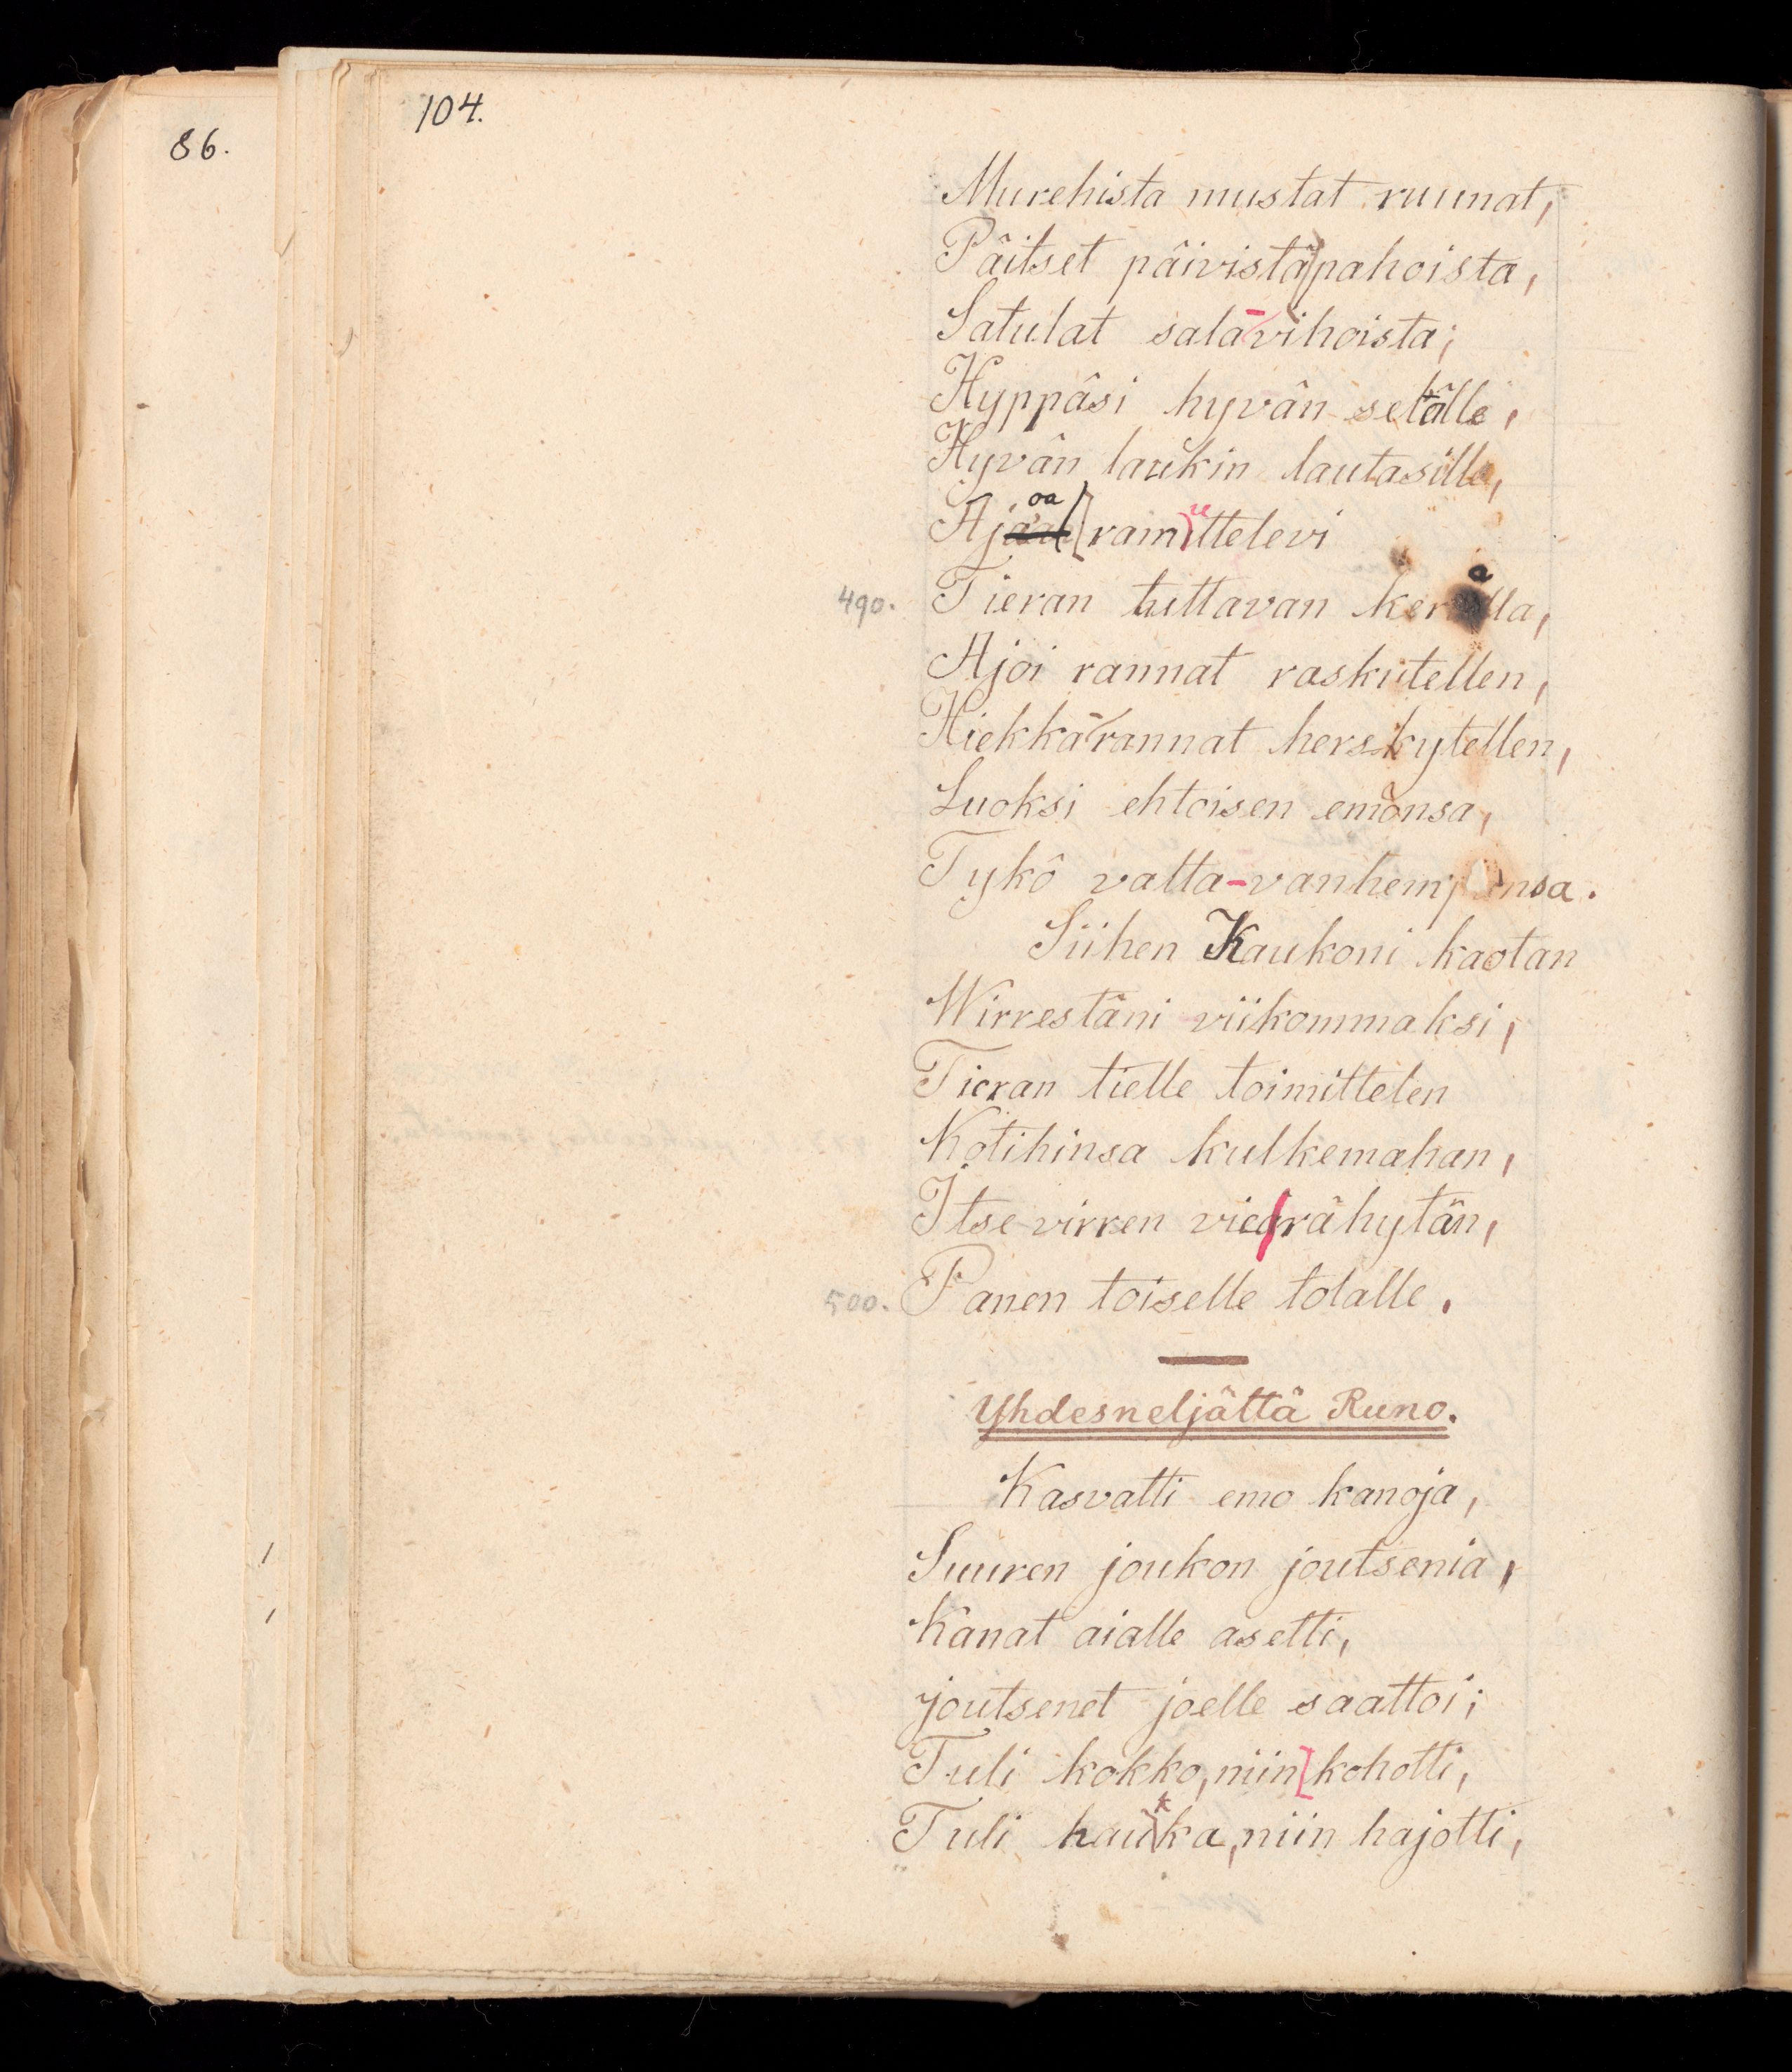 86.
104.
Murehista mustat ruunat,
Päitset päivistä pahoista,
Satulat sala-vihoista;
Hyppäsi hyvän selälle,
Hyvän laukin lautasille,
oa
Aj ramuttelevi
490. Tieran tuttavan keralla,
Ajoi rannat raskutellen,
Hiekkarannat herskytellen,
Luoksi ehtoisen emonsa,
Tykö valta-vanhempansa.
Siihen Kaukoni kaotan
Wirrestäni viikommaksi,
Tieran tielle toimittelen
Kotihinsa kulkemahan,
Itse virren vierähytän,
500. Panen toiselle tolalle.
Yhdesneljättä Runo.
Kasvatti emo kanoja,
Suuren joukon joutsenia,
Kanat aialle asetti,
joutsenet joelle saattoi;
Tuli kokko, niin kohotti,
Tuli haukka, niin hajotti,